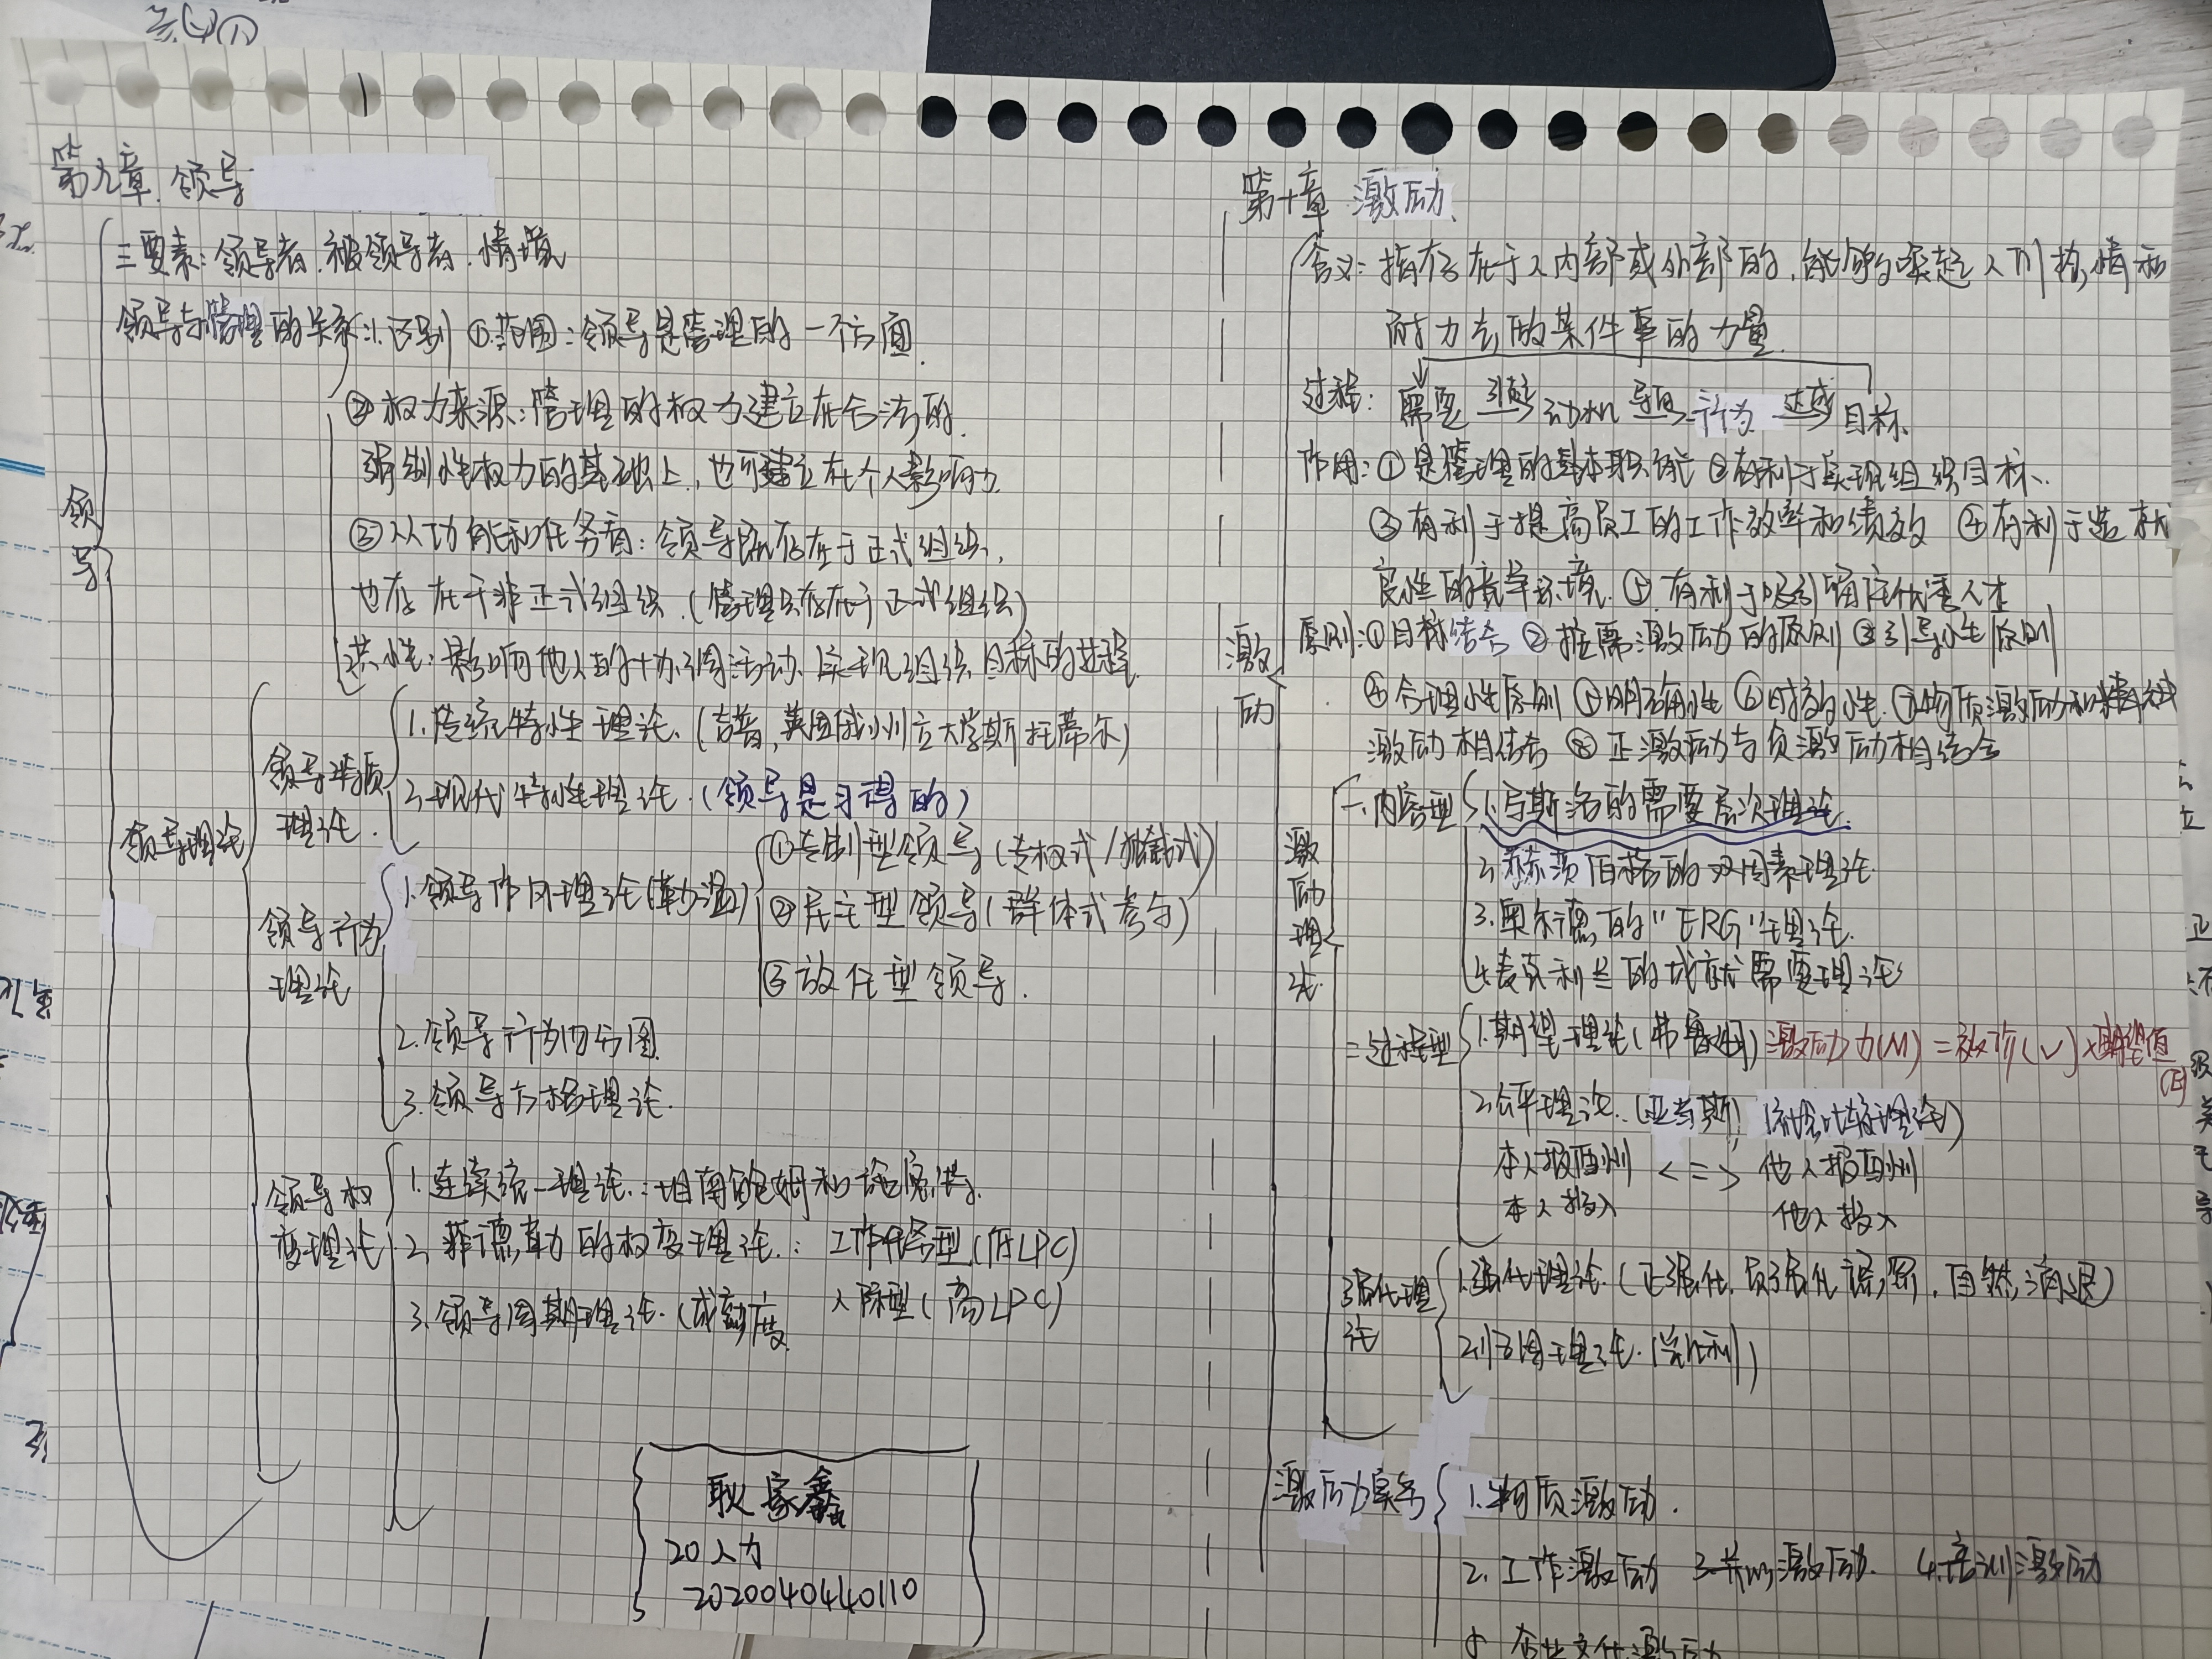 第九章 领导
三要素：领导者.被领导者.情境
领导与管理的关系：1.区别 ①范围：领导是管理的一个方面.
②权力来源：管理的权力建立在合法的.
强制性权力的基础上，也可建立在个人影响力
③从功能和任务看：领导既存在于正式组织，
也存在于非正式组织.（管理只存在于正式组织）
2.共性：影响他人的协调活动、实现组织目标的过程.
领导
领导理论
领导特质理论.
1.传统特性理论.（吉普，美国俄州立大学斯托蒂尔）
2.现代特性理论.（领导是习得的）
领导行为理论
1.领导作风理论（勒温）
①专制型领导（专权式/独裁式）
②民主型领导（群体式参与）
③放任型领导.
2.领导行为四分图
3.领导方格理论.
领导权变理论
1.连续统一理论.：坦南鲍姆和施密特.
2.菲德勒的权变理论.：工作任务型（低LPC）
人际型（高LPC）
3.领导周期理论.（成熟度
耿家鑫
20人力
2020040440110
第十章 激励
含义：指存在于人内部或外部的，能够唤起人们热情和
耐力去做某件事的力量.
过程：需要 引起 动机 导致 行为 达成 目标
作用：①是管理的基本职能 ②有利于实现组织目标.
③有利于提高员工的工作效率和绩效 ④有利于造就
良性的竞争环境 ⑤.有利于吸引留住优秀人才
激励
原则：①目标结合 ②按需激励的原则 ③引导性原则
④合理性原则 ⑤明确性 ⑥时效性 ⑦物质激励和精神
激励相结合 ⑧正激励与负激励相结合
激励理论.
一.内容型
1.马斯洛的需要层次理论.
2.赫茨伯格的双因素理论.
3.奥尔德的"ERG"理论.
4.麦克利兰的成就需要理论
二过程型
1.期望理论（弗鲁姆）激励力(M)=效价(V)×期望值(E)
2.公平理论.（亚当斯）（社会比较理论）
本人报酬 <=> 他人报酬
本人投入 他人投入
强化理论
1.强化理论.（正强化.负强化 惩罚.自然消退）
2.归因理论.（凯利）
激励实务
1.物质激励.
2.工作激励 3.激励. 4.培训激励
5 企业文化激励